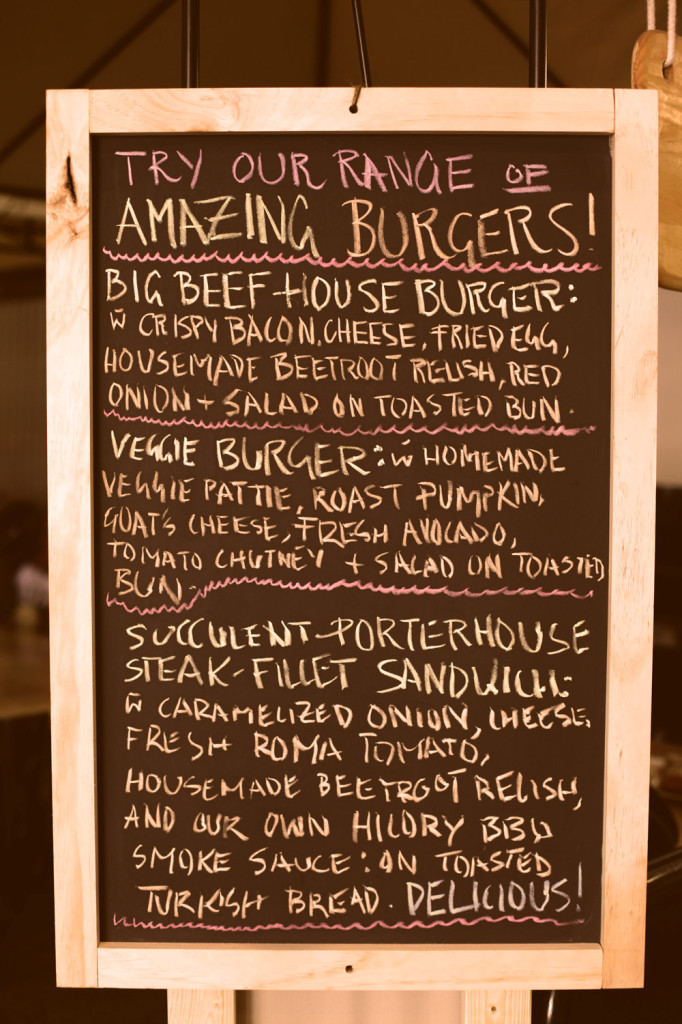 TRY OUR RANGE OF
AMAZING BURGERS!
BIG BEEF HOUSE BURGER:
W CRISPY BACON, CHEESE, FRIED EGG,
HOUSEMADE BEETROOT RELISH, RED
ONION + SALAD ON TOASTED BUN.
VEGGIE BURGER: W HOMEMADE
VEGGIE PATTIE, ROAST PUMPKIN,
GOAT'S CHEESE, FRESH AVOCADO,
TOMATO CHUTNEY + SALAD ON TOASTED
BUN.
SUCCULENT PORTERHOUSE
STEAK-FILLET SANDWICH:
W CARAMELIZED ONION, CHEESE,
FRESH ROMA TOMATO,
HOUSEMADE BEETROOT RELISH,
AND OUR OWN HICORY BBQ
SMOKE SAUCE: ON TOASTED
TURKISH BREAD. DELICIOUS!